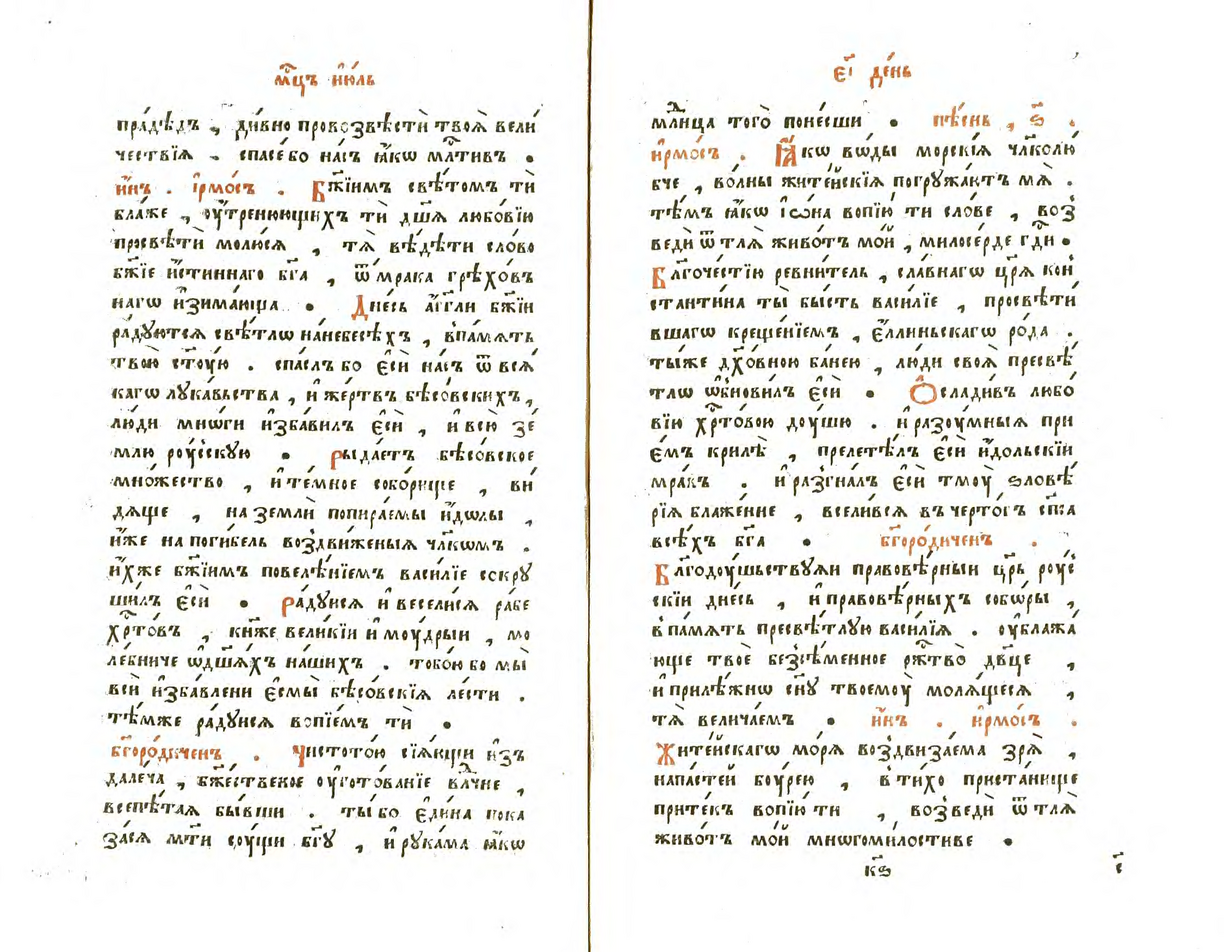 мⷭ҇цъ їю́ль
пра́дѣдъ , ди́вно провозвѣстѝ твоѧ̀ вели́
чествїѧ . спасе́ бо на́съ ꙗ҆́кѡ млⷭ҇тивъ .
и҆́нъ . і҆рмо́съ . Бж҃їимъ свѣ́томъ тѝ
бла́же , ᲂу҆́тренюющихъ тѝ дш҃ѧ любо́вїю
просвѣтѝ молю́сѧ , тѧ̀ вѣ́дѣти сло́во
бж҃їе и҆́стиннаго бг҃а , ѿ мра́ка грѣхо́въ
нагѡ и҆зима́юща . Дне́сь а҆́гг҃ли бж҃їи
ра́дуютсѧ свѣ́тлѡ на небесѣ́хъ , в̾па́мѧть
твою̀ ст҃ꙋ́ю . спа́слъ бо є҆сѝ на́съ ѿ всѧ́
кагѡ лꙋка́вьства , и҆ же́ртвъ бѣсо́вскихъ ,
лю́ди мнѡ́ги и҆зба́вилъ є҆сѝ , и҆ всю̀ зе́
млю роу́сскую . Рыда́етъ бѣсо́вское
мно́жество , и҆ те́мное собо́рище , ви́
дѧще , на землѝ попира́емы и҆́дѡлы ,
и҆́же на поги́бель воздви́женыѧ чл҃кѡмъ .
и҆́хже бж҃їимъ повелѣ́нїемъ васи́лїе сокрꙋ
ши́лъ є҆сѝ . Ра́дꙋисѧ и҆ весели́сѧ ра́бе
хрⷭ҇то́въ , кн҃же вели́кїи и҆ моу́дрыи , мо
ле́бниче ѡ҆ дш҃а́хъ на́шихъ . тобо́ю бо мы̀
всѝ и҆зба́влени є҆смы̀ бѣсо́вскїѧ ле́сти .
тѣ́мже ра́дꙋисѧ вопїе́мъ тѝ .
бг҃оро́диченъ . Чистото́ю сїѧ́ющи и҆зъ
далеча , бж҃е́ственое ᲂу҆гото́ванїе влⷣчне ,
всепѣ́таѧ бы́вши . ты́ бо є҆ди́на пока
за́сѧ мт҃и соу́щи бг҃ꙋ , и҆ рꙋка́ма ꙗ҆́кѡ
е҃ї де́нь
млⷣнца того̀ поне́сши . пѣ́снь , ѕ҃ .
і҆рмо́съ . Ꙗ҆́кѡ во́ды морскі́ѧ чл҃колю́
бче , во́лны жите́йскїѧ погрꙋжа́ютъ мѧ̀ .
тѣ́мъ ꙗ҆́кѡ і҆ѡ́на вопїю́ ти сло́ве , воз̾
ведѝ ѿ тлѧ̀ живо́тъ мо́й , милосе́рде гдⷭ҇и .
Бл҃гоче́стїю ревни́тель , сла́внагѡ цр҃ѧ̀ кон̾
стантїна ты̀ бы́сть васи́лїе , просвѣти́
вшагѡ креще́нїемъ , є҆́ллиньскагѡ ро́да .
ты́же дх҃о́вною ба́нею , лю́ди своѧ̀ пресвѣ́
тлѡ ѡ҆бнови́лъ є҆сѝ . Ѻ҆слади́въ любо́
вїю хрⷭ҇то́вою доу́шю . и҆ разоу́мныѧ прїи
є҆́мъ крилѣ̀ , прелетѣ́лъ є҆сѝ и҆́дольскїй
мра́къ . и҆ разгна́лъ є҆сѝ тмоу̀ ѕловѣ́
рїѧ блаже́нне , всели́всѧ въ черто́гъ сп҃са
всѣ́хъ бг҃а . бг҃оро́диченъ .
Бл҃годоу́шьствꙋѧи правовѣ́рныи цр҃ь роу́с̾
скїи дне́сь , и҆ правовѣ́рныхъ собо́ры ,
в̾ па́мѧть пресвѣ́тлꙋю васи́лїѧ . ᲂу҆блажа́
юще твоѐ безсѣ́менное ржⷭ҇тво̀ дв҃це ,
и҆ прилѣ́жнѡ сн҃ꙋ твоемоу̀ молѧ́щесѧ ,
тѧ̀ велича́емъ . и҆́нъ . і҆рмо́съ .
Жите́йскагѡ мо́рѧ воздвиза́ема зрѧ̀ ,
напа́стей боу́рею , в̾ ти́хо приста́нище
прите́къ вопїю́ ти , возведѝ ѿ тлѧ̀
живо́тъ мо́й многомилостиве .
кѕ҃